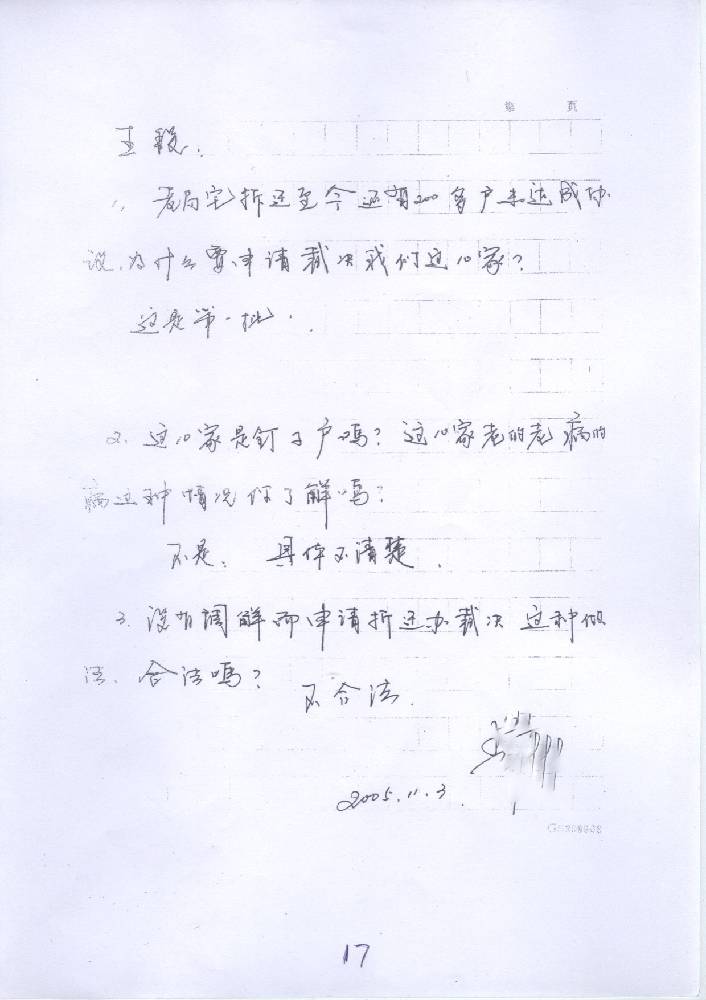 第 页
王毅.
1. 老局宅拆迁至今还有200多户未达成协
议.为什么要申请裁决我们这10家?
这是第一批.
2. 这10家是钉子户吗?这10家老的老病的
病这种情况你了解吗?
不是. 具体不清楚.
3. 没有调解而申请拆迁办裁决 这种做
法. 合法吗?
不合法.
2005.11.3
17